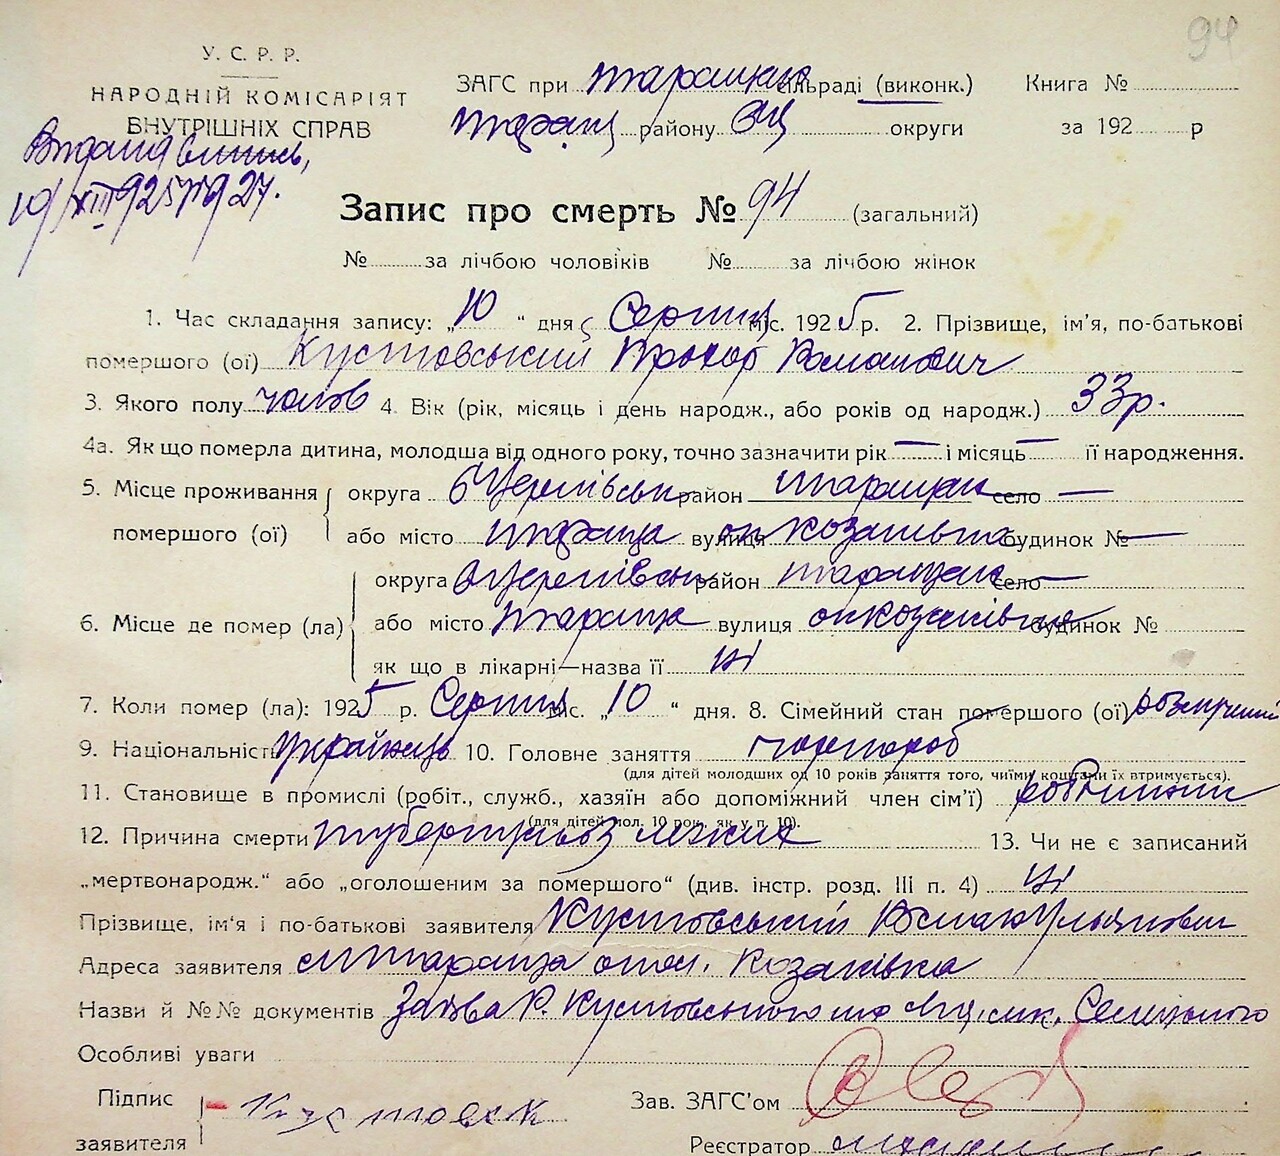 94
У. С. Р. Р.
НАРОДНІЙ КОМІСАРІЯТ
ВНУТРІШНІХ СПРАВ
Видана виписъ,
ЗАГС при Таращан сільраді (виконк.)
Таращ району БЦ округи
Книга №
за 192 р
Запис про смерть № 94 (загальний)
№ за лічбою чоловіків № за лічбою жінок
1. Час складання запису: „10“ дня Серпня міс. 1925 р. 2. Прізвище, ім'я, по-батькові
помершого (ої) Кустовський Прохор Романович
3. Якого полу чолов 4. Вік (рік, місяць і день народж., або років од народж.) 33р.
4а. Як що померла дитина, молодша від одного року, точно зазначити рік — і місяць — її народження.
5. Місце проживання помершого (ої) округа БЦерківськ район Таращан село —
або місто Тараща вулиця ок Козаківка будинок № —
6. Місце де помер (ла) округа БЦерківськ район Таращан село —
або місто Тараща вулиця ок Козаківка будинок №
як що в лікарні—назва її ні
7. Коли помер (ла): 1925 р. Серпня міс. „10“ дня. 8. Сімейний стан помершого (ої)
9. Національність Українець 10. Головне заняття чорнороб
(для дітей молодших од 10 років заняття того, чиїми коштами їх втримується).
11. Становище в промислі (робіт., служб., хазяїн або допоміжний член сім'ї) робітник
(для дітей мол. 10 рок. як у п. 10).
12. Причина смерти туберкульоз легких 13. Чи не є записаний
„мертвонародж.“ або „оголошеним за помершого“ (див. інстр. розд. III п. 4) ні
Прізвище, ім'я і по-батькові заявителя Кустовський Роман Ульянович
Адреса заявителя м Тараща окол. Козаківка
Назви й №№ документів Заява Р. Кустовського
Особливі уваги
Підпис заявителя Кустовск
Зав. ЗАГС'ом
Реєстратор